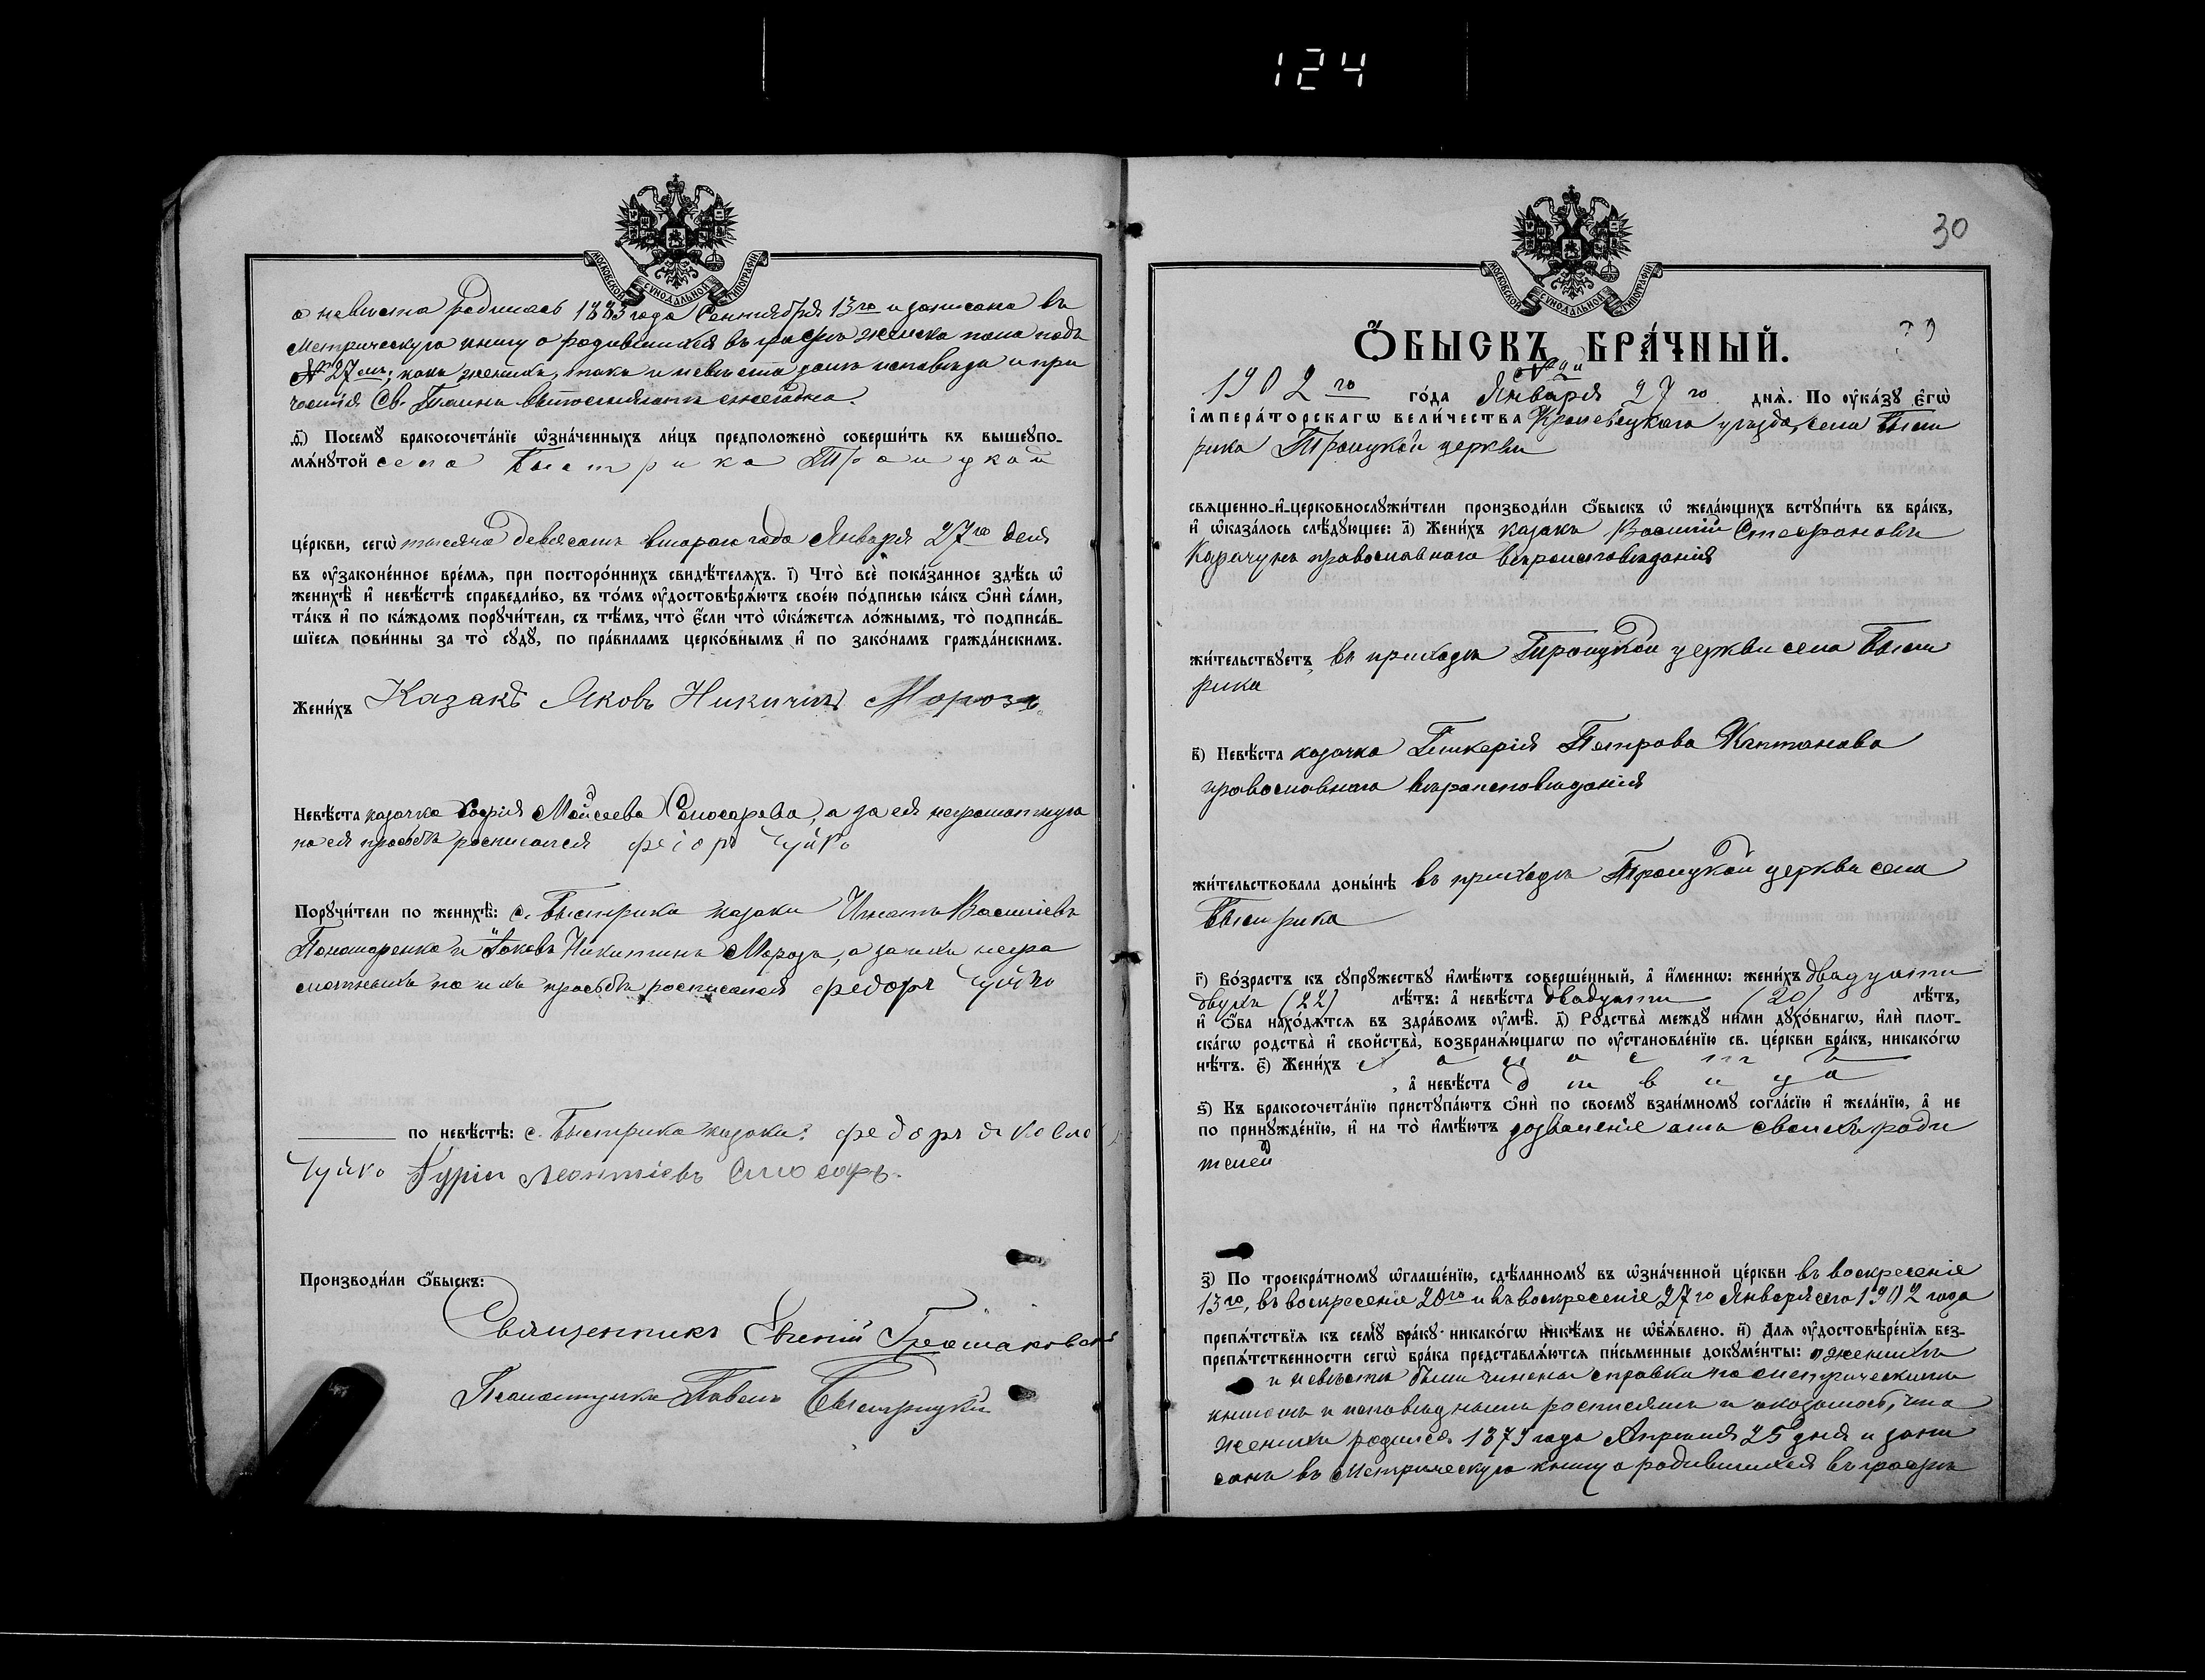 124
МОСКОВСКОЙ СѴНОДАЛЬНОЙ ТИПОГРАФІИ
а невѣста родилась 1883 года Сентября 13го и записана въ
метрическую книгу о родившихся въ графѣ женска пола подъ
№ 27мъ; какъ женихъ, такъ и невѣста долгъ исповѣди и при
частія Св. Таинъ выполняютъ ежегодно.
д҃) Посемꙋ̀ бракосочета́нїе ѡ҆зна́ченныхъ ли́цъ предположено̀ соверши́ть въ вышеꙋпо-
мѧ́нꙋтой села Быстрика Троицкой
це́ркви, сегѡ̀ тысяча девясотъ второго года Января 27го дня
въ ᲂу҆зако́ненное вре́мѧ, при посторо́ннихъ свидѣ́телѧхъ. і҃) Что̀ всѐ пока́занное здѣ́сь ѡ҆
женихѣ̀ и҆ невѣ́стѣ справедли́во, въ то́мъ ᲂу҆достовѣрѧ́ютъ свое́ю по́дписью ка́къ ѻ҆нѝ са́ми,
та́къ и҆ по ка́ждомъ порꙋчи́тели, съ тѣ́мъ, что̀ є҆́сли что̀ ѡ҆ка́жетсѧ ло́жнымъ, то̀ подписа́в-
шїесѧ пови́нны за то̀ сꙋдꙋ̀, по пра́виламъ церко́внымъ и҆ по зако́намъ гражда́нскимъ.
Жени́хъ Казакъ Яковъ Никитинъ Морозъ
Невѣ́ста казачка Софія Мойсеева Слюсарева, а за ея неграмотную
по ея просьбѣ росписался феіоръ Чуйко
Порꙋчи́тели по женихѣ̀: с. Быстрика казаки Игнатъ Василіевъ
Пономаренко и Іаковъ Никитинъ Морозъ, а за ихъ негра
мотныхъ по ихъ просьбѣ росписался федоръ Чуйко
по невѣ́стѣ: с. Быстрика казаки: федоръ яковле
Чуйко Гурій Леонтіевъ Слюсарь.
Производи́ли ѻ҆́быскъ:
Священникъ Евгеній
Псаломщикъ Павелъ Быстрицкій
30
МОСКОВСКОЙ СѴНОДАЛЬНОЙ ТИПОГРАФІИ
Ѻ҆́БЫСКЪ БРА́ЧНЫЙ.
1902го го́да Января 27го днѧ̀. По ᲂу҆ка́зꙋ є҆гѡ̀
і҆мпера́торскагѡ вели́чества Кролевецкаго уѣзда, села Быст
рика Троицкой церкви
свѧще́нно-и҆-церковнослꙋжи́тели производи́ли ѻ҆́быскъ ѡ҆ жела́ющихъ встꙋпи́ть въ бра́къ,
и҆ ѡ҆каза́лось слѣ́дꙋющее: а҃) Жени́хъ казакъ Василій Стефановъ
Карачунъ православнаго вѣроисповѣданія
жи́тельствꙋетъ въ приходѣ Троицкой церкви села Быст
рика
в҃) Невѣ́ста казачка Гликерія Петрова Каптанова
православнаго вѣроисповѣданія
жи́тельствовала доны́нѣ въ приходѣ Троицкой церкви села
Быстрика
г҃) Во́зрастъ къ сꙋпрꙋ́жествꙋ и҆мѣ́ютъ соверше́нный, а҆ и҆́меннѡ: жени́хъ двадцати
двухъ (22) лѣ́тъ: а҆ невѣ́ста двадцати (20) лѣ́тъ,
и҆ ѻ҆́ба нахо́дѧтсѧ въ здра́вомъ ᲂу҆мѣ̀. д҃) Родства̀ междꙋ̀ ни́ми дꙋхо́внагѡ, и҆лѝ плот-
ска́гѡ родства̀ и҆ свойства̀, возбранѧ́ющагѡ по ᲂу҆становле́нїю св. це́ркви бра́къ, никако́гѡ
нѣ́тъ. є҃) Жени́хъ холостъ
, а҆ невѣ́ста дѣвица
ѕ҃) Къ бракосочета́нїю пристꙋпа́ютъ ѻ҆нѝ по своемꙋ̀ взаи́мномꙋ согла́сїю и҆ жела́нїю, а҆ не
по принꙋжде́нїю, и҆ на то̀ и҆мѣ́ютъ дозволеніе отъ своихъ роди
телей
з҃) По троекра́тномꙋ ѡ҆глаше́нїю, сдѣ́ланномꙋ въ ѡ҆зна́ченной це́ркви въ воскресеніе
13го, въ воскресеніе 20го и въ воскресеніе 27го Января сего 1902 года
препѧ́тствїѧ къ семꙋ̀ бра́кꙋ никако́гѡ никѣ́мъ не ѡ҆б̾ѧ́влено. и҃) Длѧ ᲂу҆достовѣре́нїѧ без-
препѧ́тственности сегѡ̀ бра́ка представлѧ́ютсѧ пи́сьменные докꙋме́нты: о женихѣ
и невѣстѣ были чинены справки по метрическимъ
книгамъ и исповѣднымъ росписямъ и оказалось, что
женихъ родился 1879 года Апрѣля 25 дня и запи
санъ въ метрическую книгу о родившихся въ графѣ